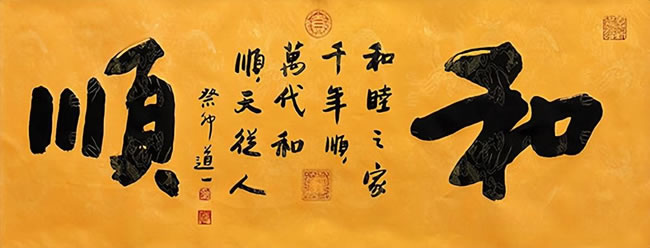 和
和睦之家
千年順
萬代和
順天從人
癸卯道一
順